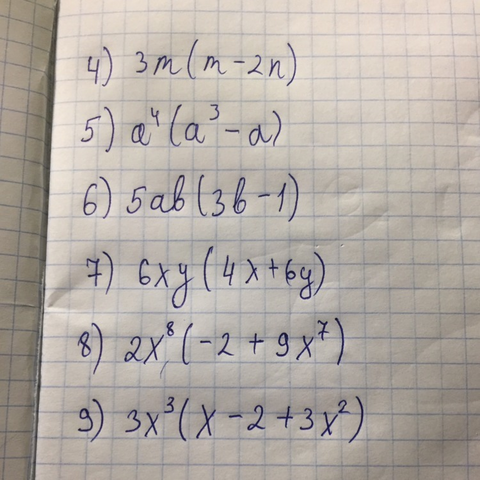 4) 3m(m-2n)
5) a⁴(a³-a)
6) 5ab(3b-1)
7) 6xy(4x+6y)
8) 2x⁸(-2+9x⁷)
9) 3x³(x-2+3x²)